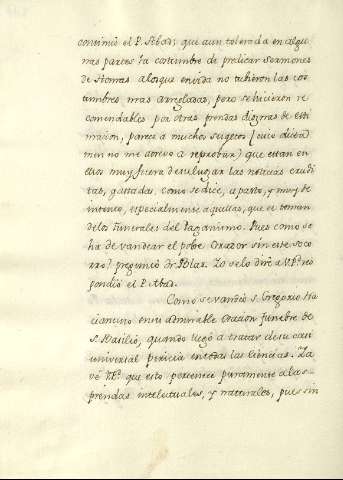 continuó el P. Abad; que aun tolerada en algu-
nas partes la costumbre de predicar Sermones
de Honras a los que en vida no tubieron las cos-
tumbres mas arregladas, pero se hicieron re-
comendables por otras prendas dignas de esti-
macion, parece a muchos sugetos (cuio dicta-
men no me atrevo a reprobar) que estan en
ellos muy fuera de su lugar las noticias erudi-
tas, gastadas, como se dice, a pasto, y muy de
intento, especialmente aquellas, que se toman
de los funerales del Paganismo. Pues como se
ha de vandear el pobre Orador sin este soco-
rro? preguntó Fr. Blas. Yo se lo diré a V.P. res-
pondió el P. Abad.
Como se vandeó S. Gregorio Na-
cianceno en su admirable Oracion funebre de
S. Basilio, quando llegó a tratar de su casi
universal pericia en todas las ciencias. Ya
vé V.P. que esto pertenece puramente a las
prendas intelectuales, y naturales, pues sin